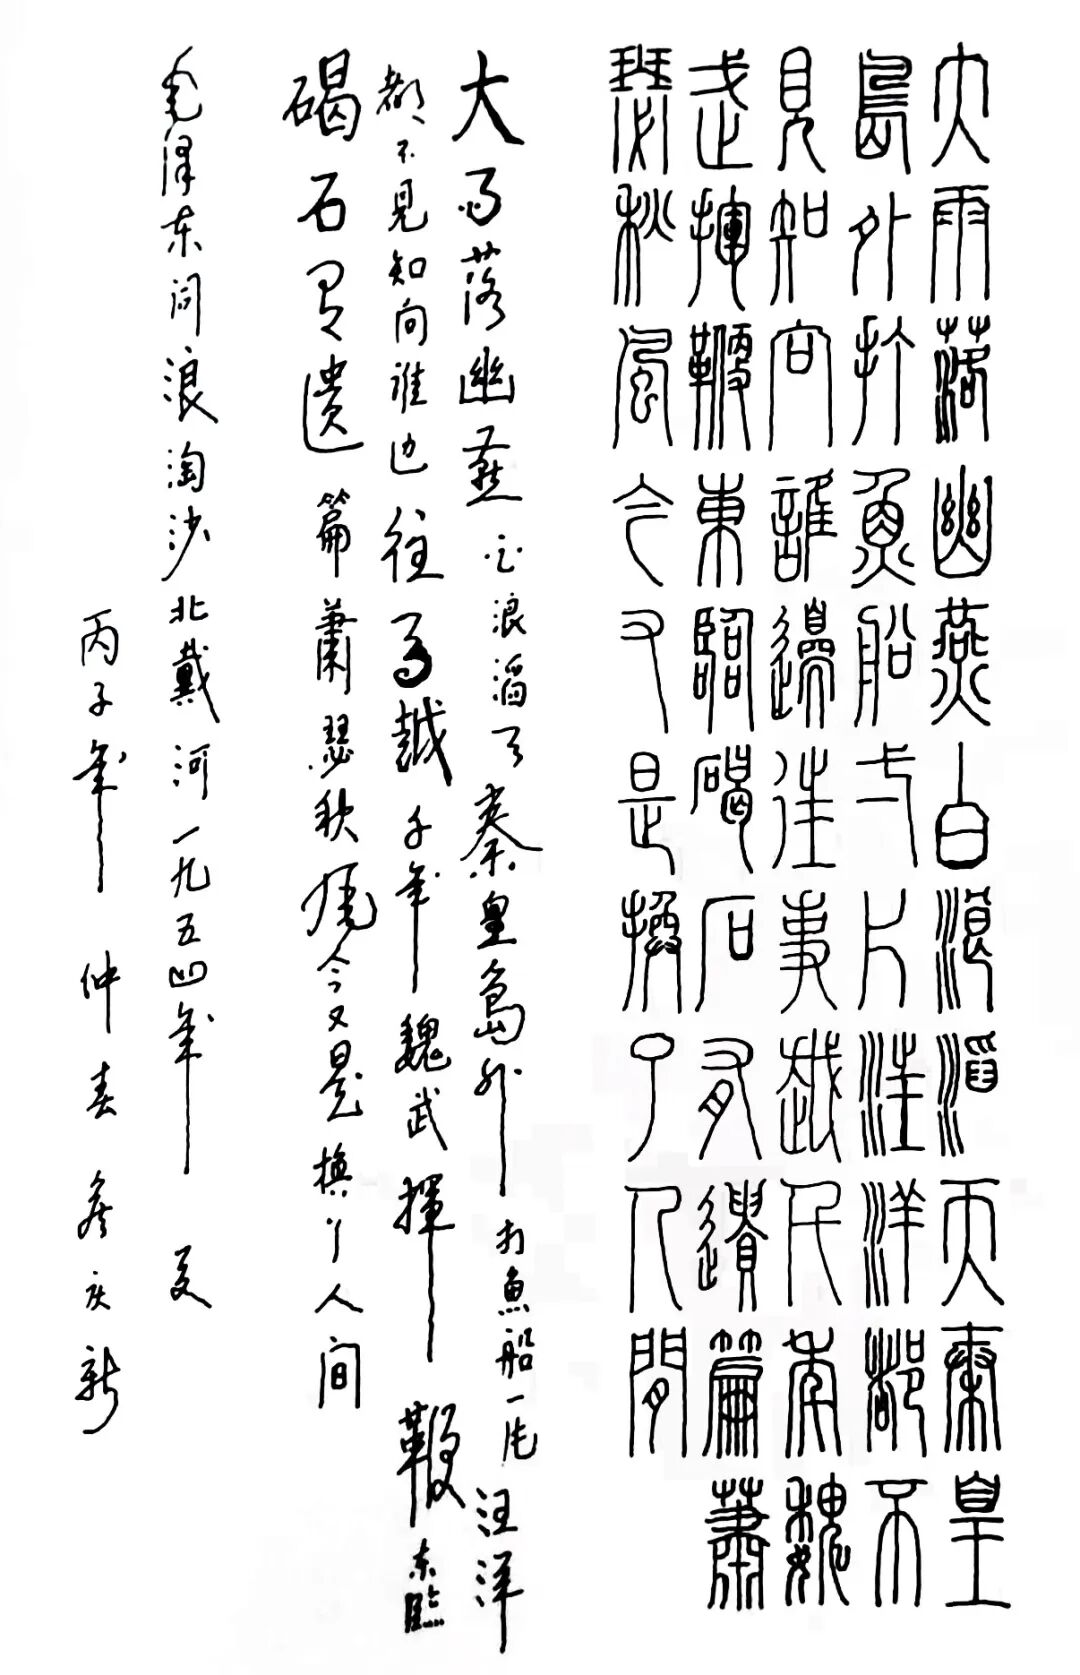 大雨落幽燕白浪滔天秦皇
島外打魚船一片汪洋都不
見知向誰邊往事越千年魏
武揮鞭東臨碣石有遺篇蕭
瑟秋風今又是換了人間
大雨落幽燕白浪滔天秦皇島外打魚船一片汪洋
都不見知向谁边往事越千年魏武揮鞭东臨
碣石有遗篇蕭瑟秋風今又是換了人间
毛泽东词浪淘沙北戴河一九五四年夏
丙子年仲春詹庆新